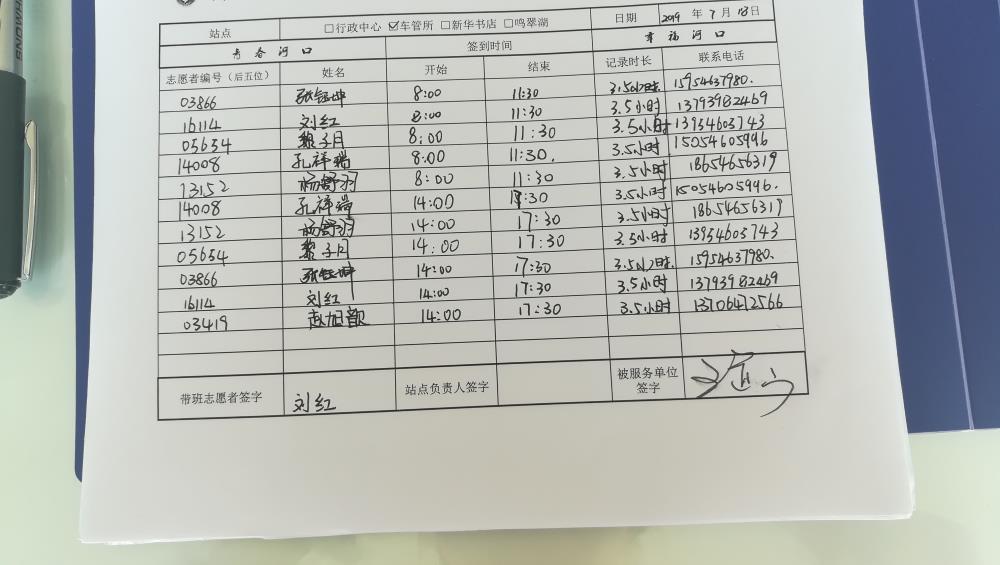 站点 □行政中心 ☑车管所 □新华书店 □鸣翠湖 日期 2019 年 7 月 18 日
青春河口 签到时间 幸福河口
志愿者编号（后五位） 姓名 开始 结束 记录时长 联系电话
03866 张钰坤 8:00 11:30 3.5小时. 15954637980.
16114 刘红 8:00 11:30 3.5小时 13793982469
05654 黎子月 8:00 11:30 3.5小时 13954603743
14008 孔祥瑞 8:00 11:30. 3.5小时 15054605996
13152 杨舒羽 8:00 11:30 3.5小时 18654656319
14008 孔祥瑞 14:00 17:30 3.5小时 15054605996.
13152 杨舒羽 14:00 17:30 3.5小时 18654656319
05654 黎子月 14:00 17:30 3.5小时 13954603743
03866 张钰坤 14:00 17:30 3.5小时. 15954637980.
16114 刘红 14:00 17:30 3.5小时 13793982469
03419 赵旭歆 14:00 17:30 3.5小时 13706472566
带班志愿者签字 刘红 站点负责人签字 被服务单位签字
SNOWHI